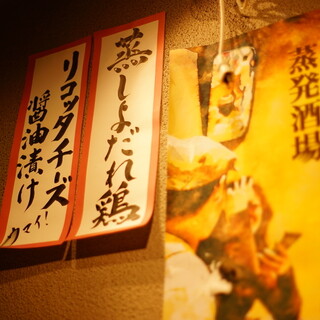 蒸発酒場
蒸しよだれ鶏
リコッタチーズ
醤油漬け
ウマイ!